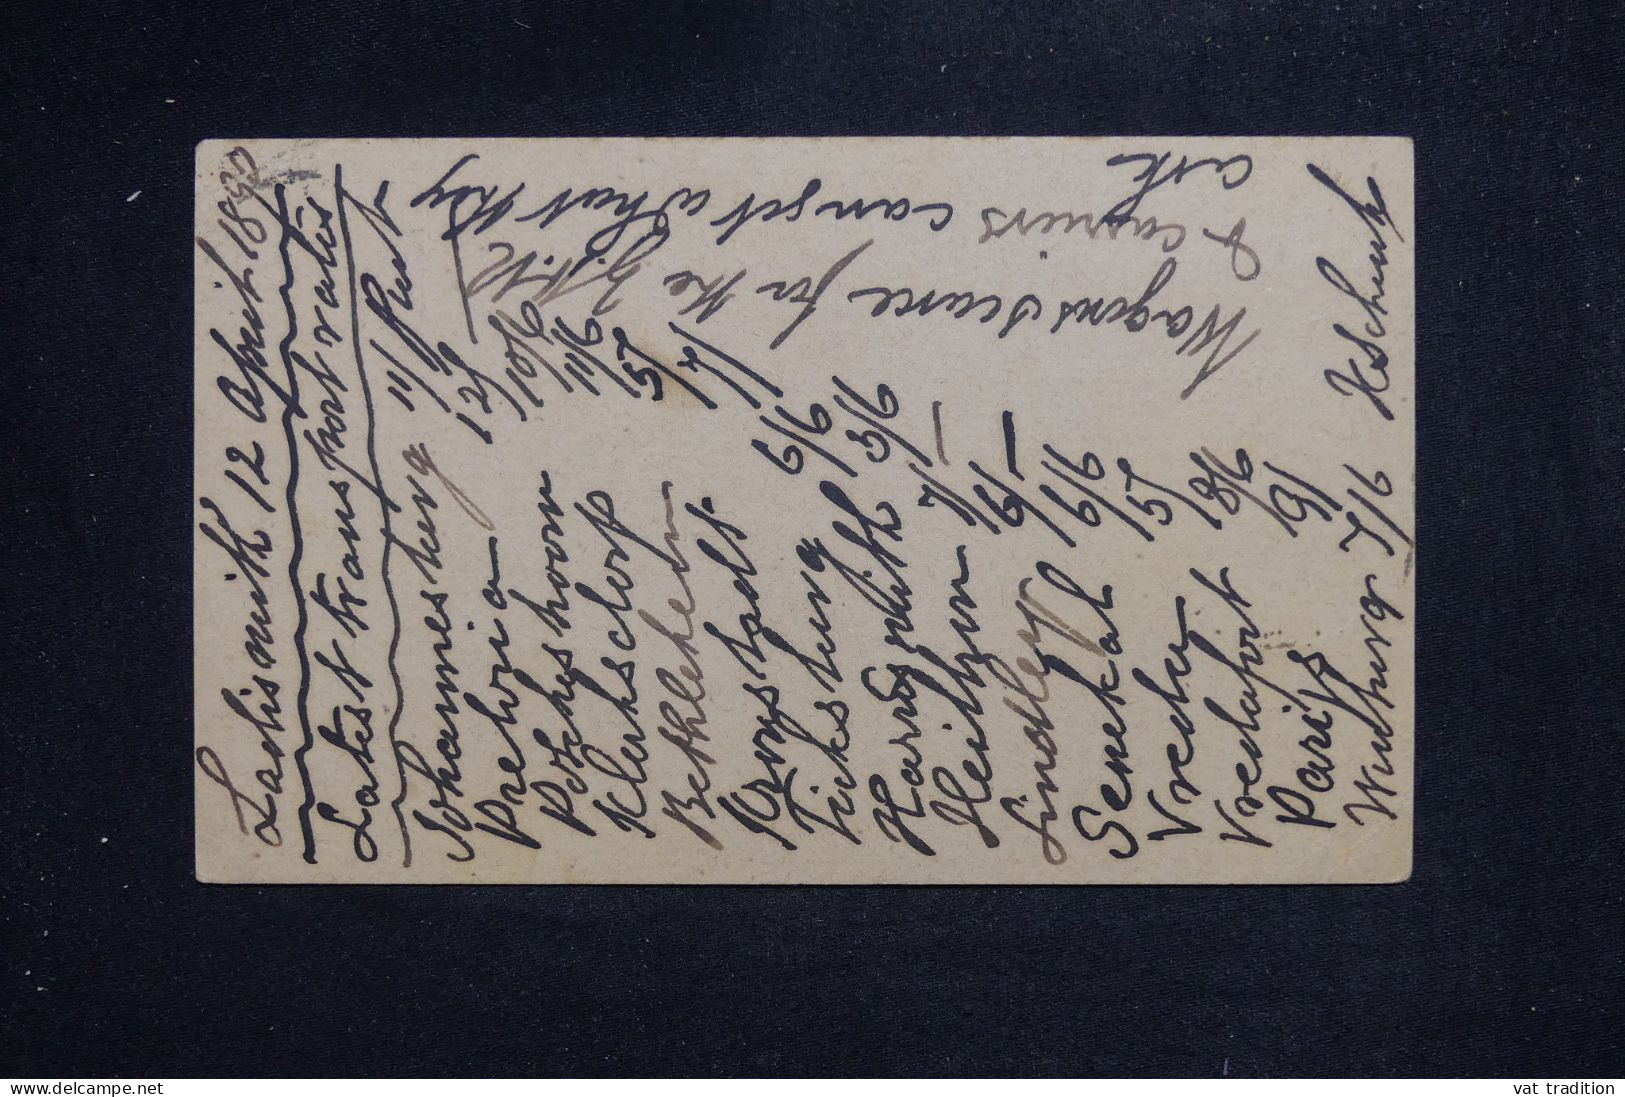 Ladismith 12 April 189
Latest transport rates
Johannesburg 11/ Pust
Pretoria 12/
Potchestroom 10/6
Klerksdorp 11/6
Bethlehem 5/
Kronstadt
Ficksburg 6/
Harrismith 
Heilbron 7/ —
Lindley 6/ —
Senekal 6/6
Vrede 5/
Vredefort 8/6
Paris 9/
Winburg 7/6
Wagons scarce for the
& carriers can get what they
ask
delcampe.net
vat tradition